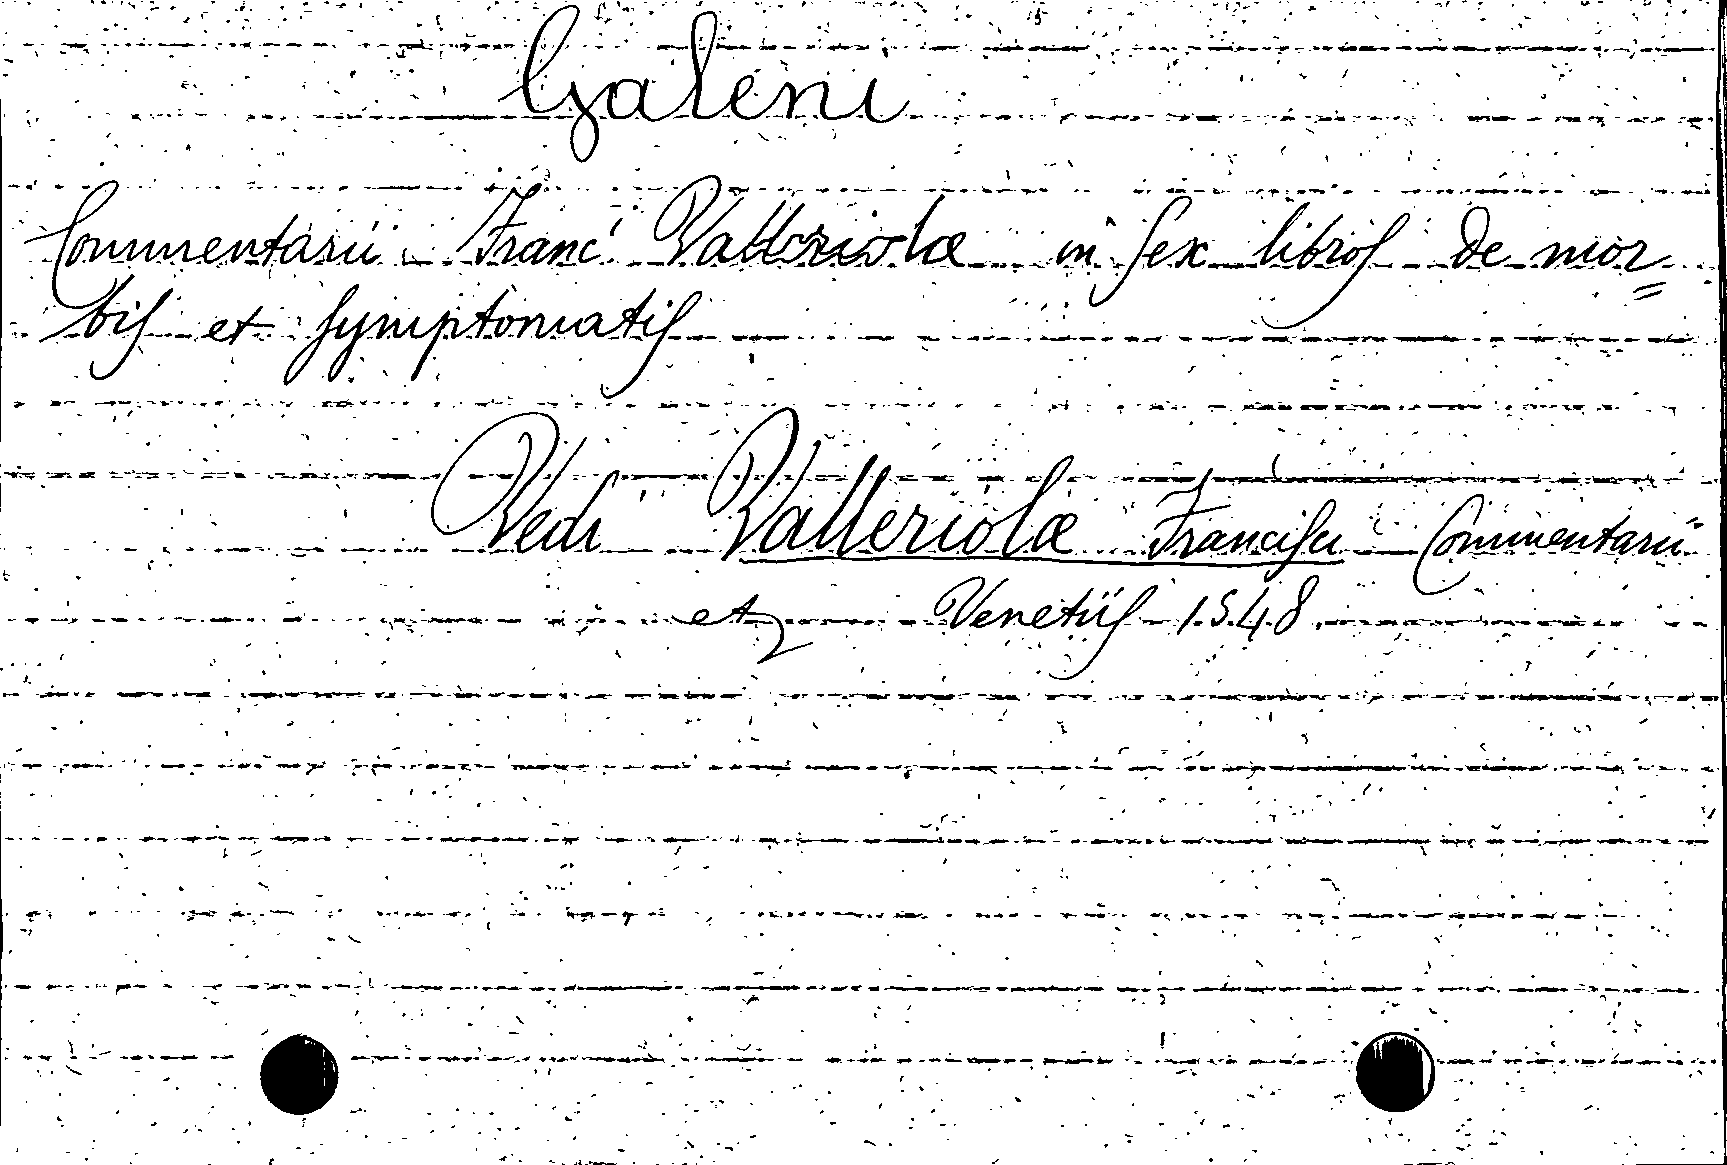 Galeni
Commentarii Franc' Valleriolæ in sex libros de mor=
bis et symptomatis
Vedi Valleriolæ Francisci Commentarii
etz Venetiis 1548